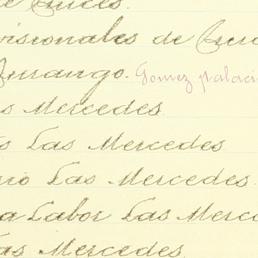 de Cruces.
visionales de
Durango. Gomez Palaci
s Mercedes
s Las Mercedes
rio Las Mercedes.
a Labor Las Merc
as Mercedes